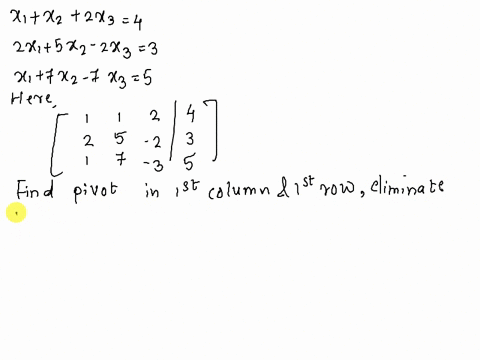 x₁+x₂+2x₃=4
2x₁+5x₂-2x₃=3
x₁+7x₂-7x₃=5
Here,
1 1 2 | 4
2 5 -2 | 3
1 7 -3 | 5
Find pivot in 1st column & 1st row, eliminate